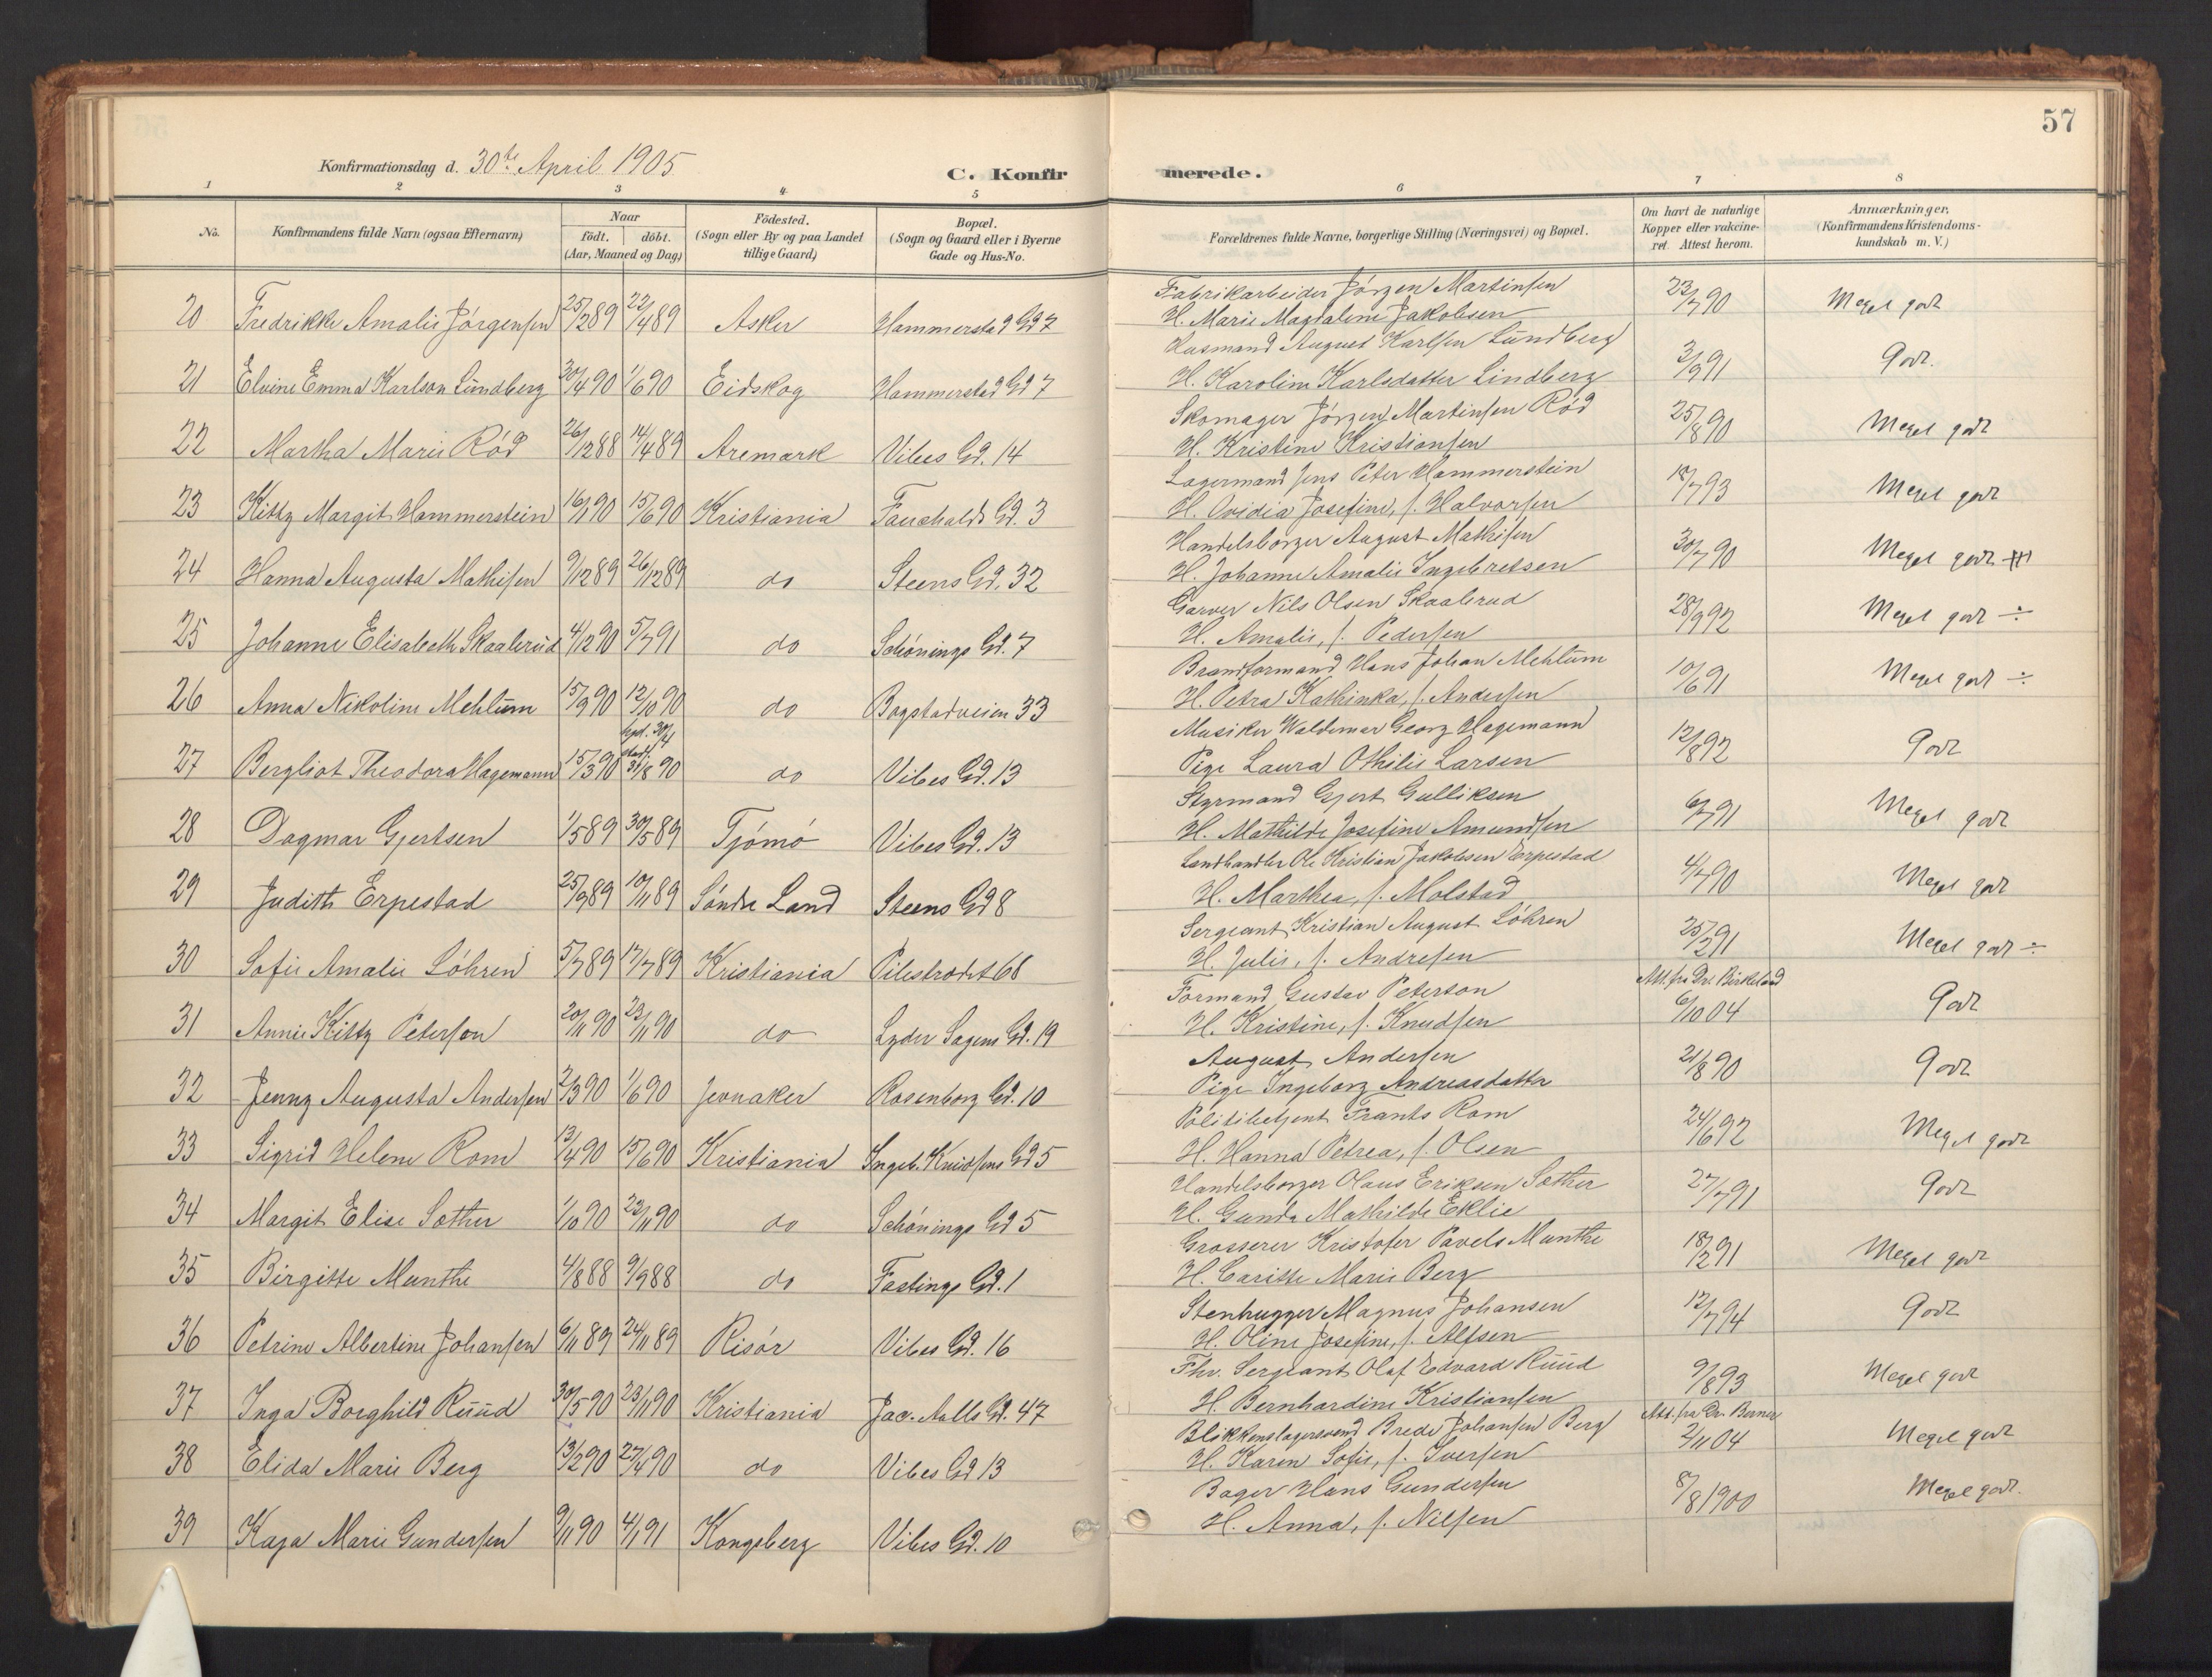 57
Konfirmationsdag d. 30te April 1905
C. Konfirmerede.
1 2 3 4 5 6 7 8
No. Konfirmandens fulde Navn (ogsaa Efternavn) Naar födt. döbt. (Aar, Maaned og Dag) Födested. (Sogn eller By og paa Landet tillige Gaard) Bopæl. (Sogn og Gaard eller i Byerne Gade og Hus-No. Forældrenes fulde Navne, borgerlige Stilling (Næringsvei) og Bopæl. Om havt de naturlige Kopper eller vakcineret. Attest herom. Anmærkninger, (Konfirmandens Kristendomskundskab m. V.)
20 Fredrikke Amalie Jörgensen 25/2 89 22/4 89 Asker Hammerstad Gd 7 Fabrikarbeider Jörgen Martinsen
H. Marie Magdalene Jakobsen 23/7 90 Meget godt
21 Elvine Emma Karlson Lundberg 30/4 90 1/6 90 Eidskog Hammerstad Gd 7 Husmand August Karlsen Lundberg
H. Karoline Karlsdatter Lindberg 3/9 91 Godt.
22 Martha Marie Röd 26/12 88 14/4 89 Aremark Vibes Gd. 14 Skomager Jörgen Martinsen Röd
H. Kristine Kristiansen 25/8 90 Meget godt
23 Kitty Margit Hammerstein 16/1 90 15/6 90 Kristiania Fauchalds Gd. 3 Lagermand Jens Peter Hammerstein
H. Ovidia Josefine, f. Halvorsen 18/7 93 Meget godt
24 Hanna Augusta Mathisen 9/12 89 26/12 89 do Steens Gd. 32 Handelsborger August Mathisen
H. Johanne Amalie Ingebretsen 30/7 90 Meget godt
25 Johanne Elisabeth Skaalerud 4/12 90 5/7 91 do Schönings Gd. 7 Garver Nils Olsen Skaalerud
H. Amalie, f. Pedersen 28/9 92 Meget godt ÷
26 Anna Nikoline Mehlum 15/9 90 12/10 90 do Bogstadveien 33 Brandformand Hans Johan Mehlum
H. Petra Kathinka, f. Andersen 10/6 91 Meget godt ÷
27 Bergliot Theodora Hagemann 15/3 90 hjd. 30/4 stadf. 31/8 90 do Vibes Gd. 13 Musiker Waldemar Georg Hagemann
Pige Laura Othilie Larsen 12/8 92 Godt
28 Dagmar Gjertsen 1/5 89 30/5 89 Tjömö Vibes Gd. 13 Styrmand Gjert Gulliksen
H. Mathilde Josefine Amundsen 6/7 91 Meget godt
29 Judith Erpestad 25/9 89 10/11 89 Söndre Land Steens Gd 8 Landhandler Ole Kristian Jakobsen Erpestad
H. Marthea, f. Molstad 4/7 90 Meget godt
30 Sofie Amalie Löhren 5/7 89 17/7 89 Kristiania Pilestrædet 68 Sergeant Kristian August Löhren
H. Julie, f. Andresen 25/2 91 Meget godt ÷
31 Annie Kitty Peterson 20/11 90 23/11 90 do Lyder Sagens Gd. 19 Formand Gustav Peterson
H. Kristine, f. Knudsen Att. fra Dr. Birkeland 6/10 04 Godt
32 Jenny Augusta Andersen 2/3 90 1/6 90 Jevnaker Rosenborg Gd. 10 August Andersen
Pige Ingeborg Andreasdatter 21/8 90 Godt
33 Sigrid Helene Rom 13/4 90 15/6 90 Kristiania Ingeb. Knudsens Gd 5 Politibetjent Frants Rom
H. Hanna Petrea, f. Olsen 24/6 92 Meget godt
34 Margit Elise Sæther 1/10 90 23/11 90 do Schönings Gd 5 Handelsborger Olaus Eriksen Sæther
H. Gunda Mathilde Eklie 27/7 91 Godt
35 Birgitte Munthe 4/8 88 9/9 88 do Fastings Gd. 1 Grosserer Kristofer Pavels Munthe
H. Caritte Marie Berg 18/2 91 Meget godt
36 Petrine Albertine Johansen 6/11 89 24/11 89 Risör Vibes Gd. 16 Stenhugger Magnus Johansen
H. Oline Josefine, f. Alfsen 12/7 94 Godt
37 Inga Borghild Ruud 30/5 90 23/11 90 Kristiania Jac. Aalls Gd. 47 Fhv. Sergeant Olaf Edvard Ruud
H. Bernhardine Kristiansen 9/8 93 Meget godt
38 Elida Marie Berg 13/2 90 27/4 90 do Vibes Gd 13 Blikkenslagersvend Brede Johansen Berg
H. Karen Sofie, f. Iversen Att. fra Dr. Berner 2/11 04 Meget godt
39 Kaja Marie Gundersen 9/11 90 4/1 91 Kongsberg Vibes Gd. 10 Bager Hans Gundersen
H. Anna, f. Nilsen 8/8 1900 Meget godt.